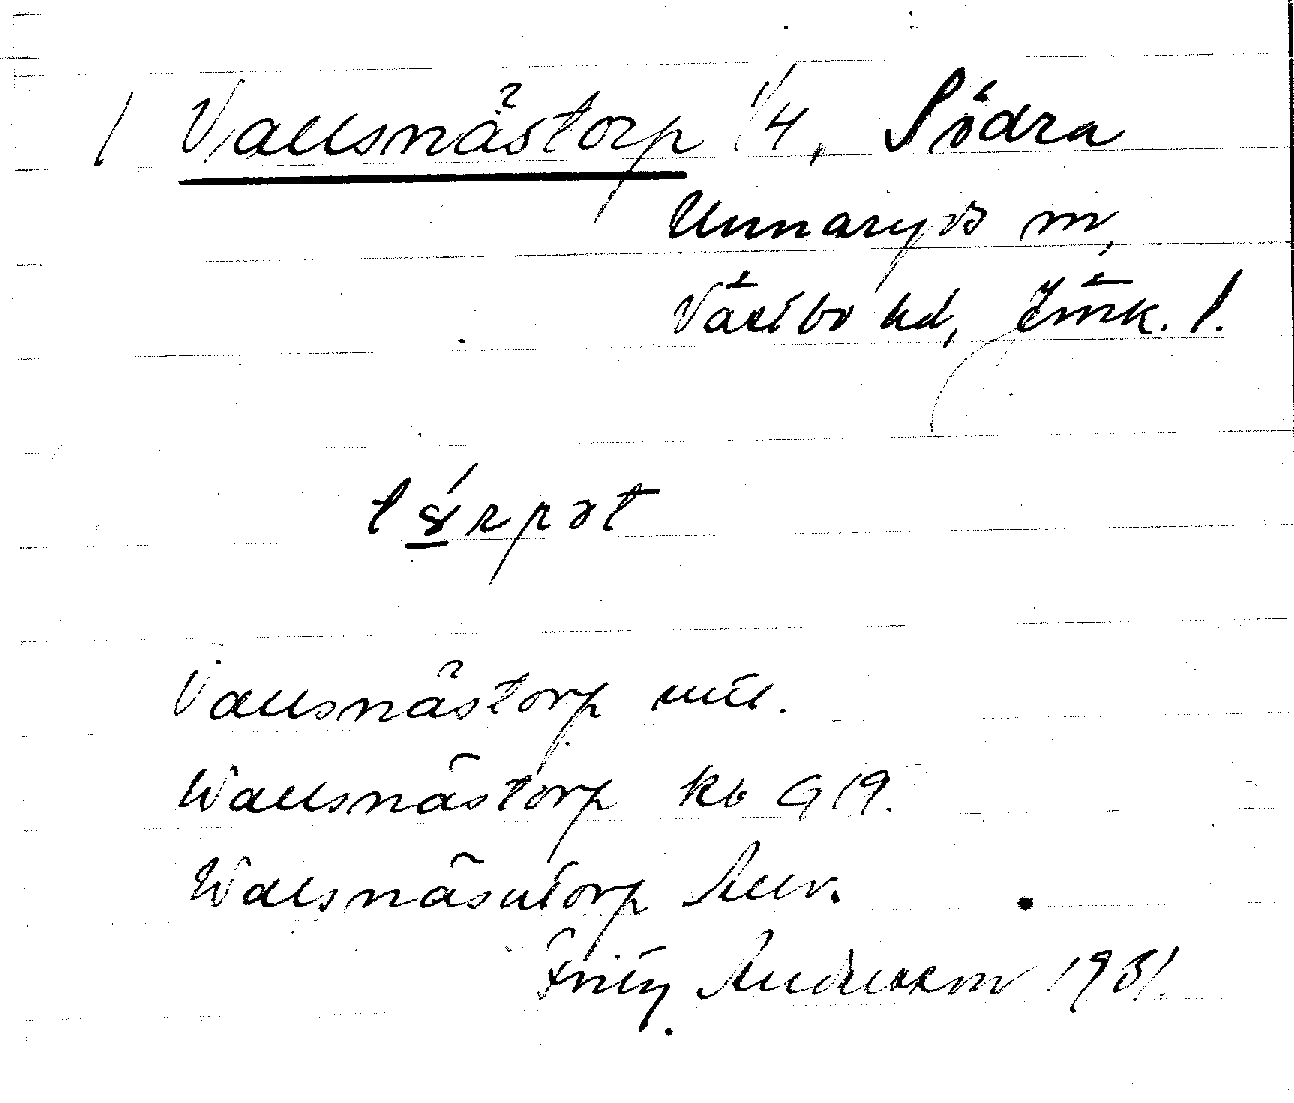 / Vallsnästorp 1/4, Södra
Unnaryds sn,
Västbo hd, Jönk. l.
Vallsnästorp
Wallsnästorp kb G 19.
Wallsnäsutorp
Fritz Andersson 1931.